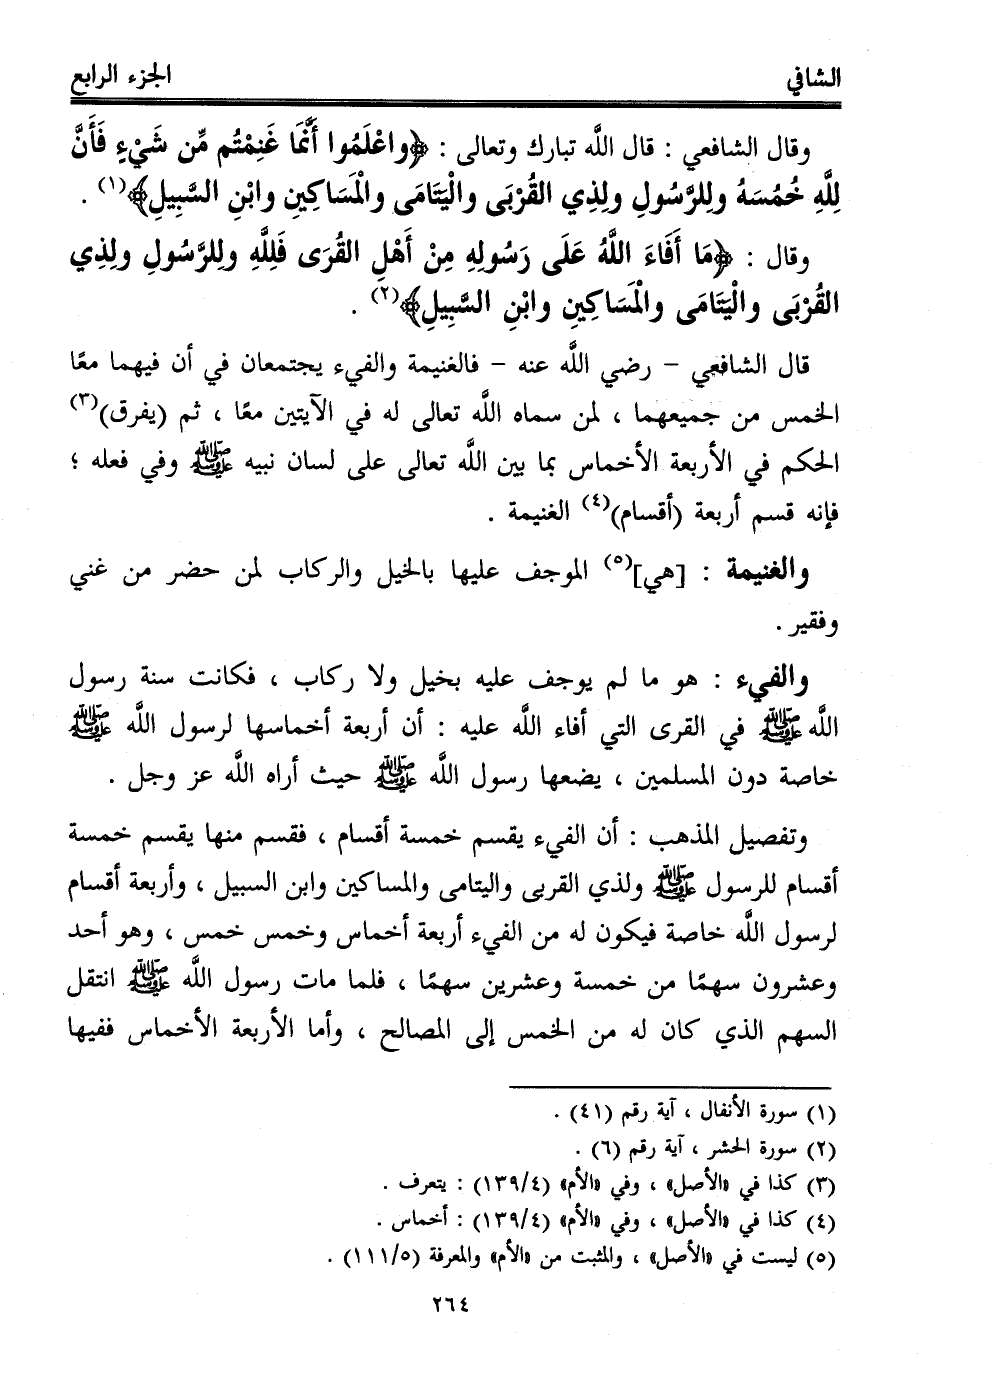 الشافي
الجزء الرابع
وقال الشافعي : قال اللَّه تبارك وتعالى : ﴿واعْلَمُوا أَنَّمَا غَنِمْتُم مِّن شَيْءٍ فَأَنَّ
لِلَّهِ خُمُسَهُ ولِلرَّسُولِ ولِذِي القُرْبَى والْيَتَامَى والْمَسَاكِينِ وابْنِ السَّبِيلِ﴾(١) .
وقال : ﴿مَا أَفَاءَ اللَّهُ عَلَى رَسُولِهِ مِنْ أَهْلِ القُرَى فَلِلَّهِ ولِلرَّسُولِ ولِذِي
القُرْبَى والْيَتَامَى والْمَسَاكِينِ وابْنِ السَّبِيلِ﴾(٢) .
قال الشافعي – رضي اللَّه عنه – فالغنيمة والفيء يجتمعان في أن فيهما معًا
الخمس من جميعهما ، لمن سماه اللَّه تعالى له في الآيتين معًا ، ثم (يفرق)(٣)
الحكم في الأربعة الأخماس بما بين اللَّه تعالى على لسان نبيه ﷺ وفي فعله ؛
فإنه قسم أربعة (أقسام)(٤) الغنيمة .
والغنيمة : [هي](٥) الموجف عليها بالخيل والركاب لمن حضر من غني
وفقير .
والفيء : هو ما لم يوجف عليه بخيل ولا ركاب ، فكانت سنة رسول
اللَّه ﷺ في القرى التي أفاء اللَّه عليه : أن أربعة أخماسها لرسول اللَّه ﷺ
خاصة دون المسلمين ، يضعها رسول اللَّه ﷺ حيث أراه اللَّه عز وجل .
وتفصيل المذهب : أن الفيء يقسم خمسة أقسام ، فقسم منها يقسم خمسة
أقسام للرسول ﷺ ولذي القربى واليتامى والمساكين وابن السبيل ، وأربعة أقسام
لرسول اللَّه خاصة فيكون له من الفيء أربعة أخماس وخمس خمس ، وهو أحد
وعشرون سهمًا من خمسة وعشرين سهمًا ، فلما مات رسول اللَّه ﷺ انتقل
السهم الذي كان له من الخمس إلى المصالح ، وأما الأربعة الأخماس ففيها
(١) سورة الأنفال ، آية رقم (٤١) .
(٢) سورة الحشر ، آية رقم (٦) .
(٣) كذا في «الأصل» ، وفي «الأم» (١٣٩/٤) : يتعرف .
(٤) كذا في «الأصل» ، وفي «الأم» (١٣٩/٤) : أخماس .
(٥) ليست في «الأصل» ، والمثبت من «الأم» والمعرفة (١١١/٥) .
٢٦٤